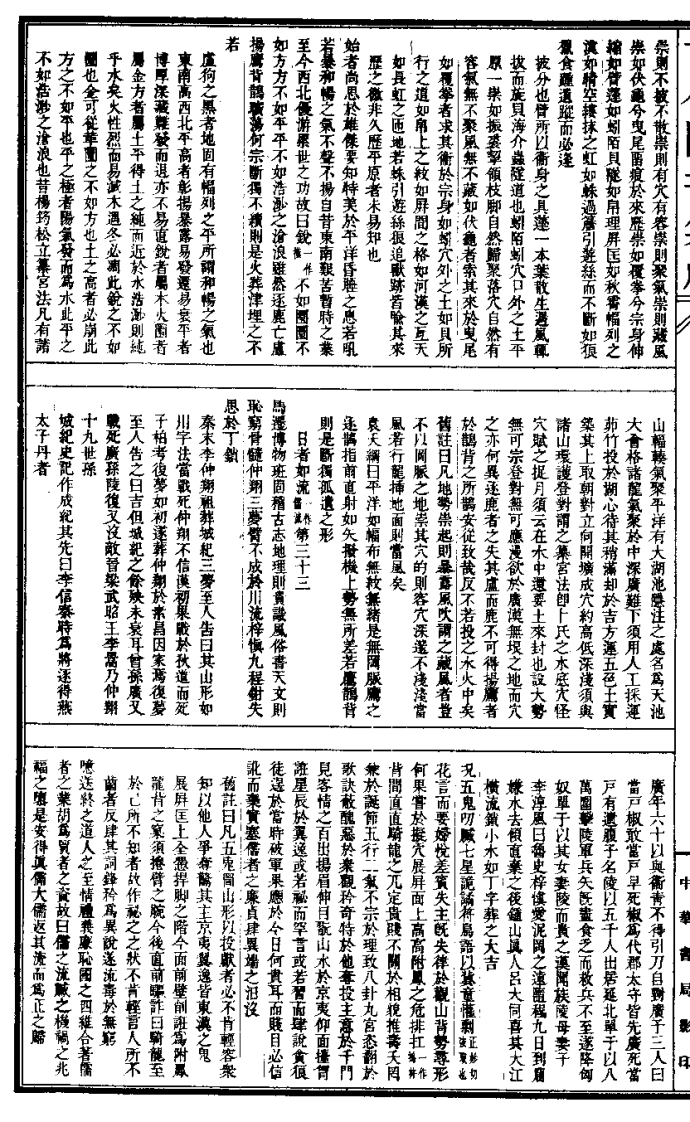 崇則不披不散崇則有穴有容崇則聚氣崇則藏風
崇如伏龜兮曳尾留痕於來歷崇如覆拳兮宗身伸
縮如臂蓬如蚓陌貝隧如帛理屏匡如秋霄幅列之
漢如晴空縷抹之虹如蛛過簷引遊絲而不斷如狼
獵食麤遺蹤而必逢
披分也臂所以衞身之具蓬一本葉散生遇風輒
拔而旋貝海介蟲隧道也蚓陌蚓穴口外之土平
原一崇如振裘挈領枝脚自然歸聚落穴自然有
容氣無不聚風無不藏如伏龜者索其來於曳尾
如覆拳者求其衞於宗身如蚓穴外之土如貝所
行之道如帛上之紋如屏間之格如河漢之亙天
如長虹之匝地若蛛引遊絲狼追獸跡皆喩其來
歷之微非久歷平原者未易知也
始者尚思於雄傑要知特美於平洋昏睦之息若吼
若暴和暢之氣不聲不揚自昔東南艱苦暫時之葉
至今西北優游累世之功故曰銳一作不如圈圈不
如方方不如平平不如浩渺之滄浪雖然逐鹿亡盧
揚鷹背鵲曠蕩何宗斷獨不續則是火葬津埋之不
若
盧狗之黑者地固有幅列之平所謂和暢之氣也
東南高西北平高者彰揚暴露易發還易衰平者
博厚深藏難發而退亦不易直銳者屬木火圈者
屬金方者屬土平得土之純而近於水浩渺則純
乎水矣火性烈而易滅木遇冬必凋此銳之不如
圈也金可從革圈之不如方也土之高者必崩此
方之不如平也平之極者陽氣發而爲水此平之
不如浩渺之滄浪也昔楊筠松立纂宮法凡有諸
山輻輳氣聚平洋有大湖池懸注之處名爲天池
大會格諸龍氣聚於中深廣難下須用人工採運
茆竹投於湖心待其稍滿却於吉方運五色土實
築其上取朝對立向開壙成穴約高低深淺須與
諸山環護登對謂之纂宮法卽卜氏之水底穴怪
穴賦之捉月須云在水中還要土來封也設大勢
無可宗登對無可應漫欲於廣漠無垠之地而穴
之亦何異逐鹿者之失其盧而鹿不可得揚鷹者
於鵲背之所鵲安從致哉反不若投之水火中矣
舊註曰凡地勢崇起則暴露風吹謂之藏風者豈
不以岡脈之地崇其穴的則客穴深邃不淺淺當
風若行龍挿地面則當風矣
袁天綱曰平洋如幅布無紋無緒是無岡脈鷹之
逐鵲指前直射如矢撥機上勢無所差若鷹鵲背
則是斷獨孤遺之形
日者如流第三十三
馬遷博物班固稽古志地理則貫識風俗書天文則
恥窮骨髓仲翔三夢臂不成於川流梓愼九程鉗失
思於丁鎖
秦末李仲翔祖葬城紀三夢至人告曰其山形如
川字法當戰死仲翔不信漢初果戰於狄道而死
子柏考復夢如初遂葬仲翔於素昌因家焉復夢
至人告之曰吉但城紀之餘殃未衰耳曾孫廣又
戰死廣孫陵復又沒敵晉梁武昭王李暠乃仲翔
十九世孫
城紀史記作成紀其先曰李信秦時爲將逐得燕
太子丹者
廣年六十以與衞青不得引刀自對廣子三人曰
當戸椒敢當戸早死椒爲代郡太守皆先廣死當
戸有遺腹子名陵以五千人出居延北單于以八
萬圍擊陵軍兵矢旣盡食乏而救兵不至遂降匈
奴單于以其女妻陵而貴之漢聞族陵母妻子
李淳風曰魯史梓愼愛泥岡之遠龍程九日到廟
嫌水去傾直棄之後鍾山異人呂大同喜其大江
橫流鎖小水如丁字葬之大吉
況五鬼叨贓七星詭譎將鳥語以猿意惟剽
花言而要婚悅差賓失主旣失律於觀山背勢辱形
何果嘗於擬穴展屏面上高高附鳳之危排扛一作
背間直直騎龍之兀定貴賤不關於相貌推壽夭罔
兼於誕節五行二氣不宗於理致八卦九宮忝翻於
歌訣敝醜惡於衆觀矜奇特於他奪投主意於千門
見客情之百出揚眉伸目翫山水於京夷仰面擡胷
誑星辰於翼遠或若祕而罕言或若習而肆說貪狼
徒逞於當時破軍果應於今日何貴耳而賤目必信
訛而棄實塞儒者之廉貞肆異端之汨沒
舊註曰凡五鬼圖山形以投獻者必不肯輕容衆
知以他人爭奪騖其主京夷翼遠皆東漢之鬼
展屏匡上全憑捍脚之階今面前壁削誑爲附鳳
龍背之窠須捲臂之腕今後直前騙詐曰騎龍至
於己所不知者故作祕之之狀不肯輕言人所不
曾者反肆其詞鋒矜爲異說遂流毒於無窮
噫送終之道人之至情禮義廉恥國之四維合著儒
者之業胡爲貿者之資故曰儒之流贓之機禍之兆
福之隳是安得眞儒大儒返其流而爲正之歸
中華書局影印